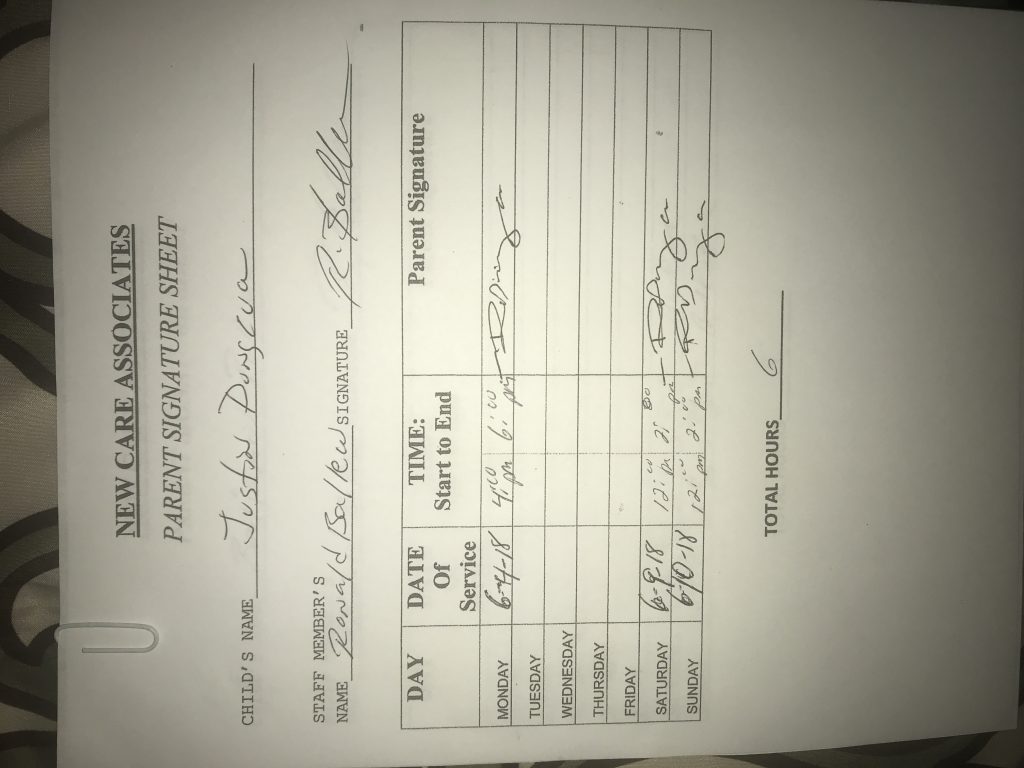 NEW CARE ASSOCIATES
PARENT SIGNATURE SHEET
CHILD'S NAME Justin
STAFF MEMBER'S
NAME Ronald Balkew SIGNATURE
DAY DATE Of Service TIME: Start to End Parent Signature
MONDAY 6-4-18 4:00 pm 6:00 pm
TUESDAY
WEDNESDAY
THURSDAY
FRIDAY
SATURDAY 6-9-18 12:00 pm 2:00 pm
SUNDAY 6-10-18 12:00 pm 2:00 pm
TOTAL HOURS 6